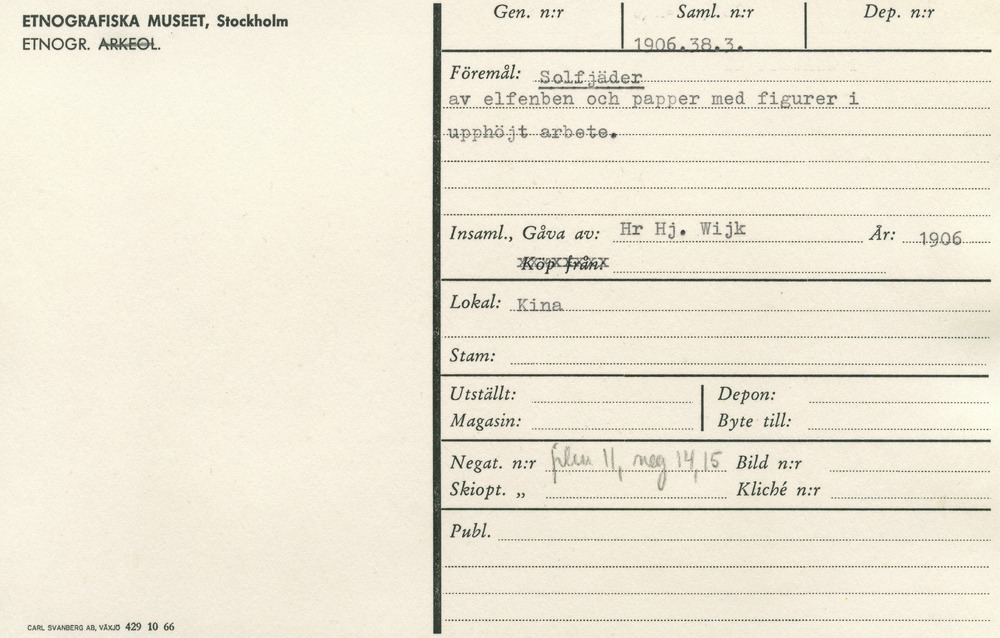 ETNOGRAFISKA MUSEET, Stockholm
ETNOGR. ARKEOL.
Gen. n:r Saml. n:r Dep. n:r
1906.38.3.
Föremål: Solfjäder
av elfenben och papper med figurer i
upphöjt arbete.
Insaml., Gåva av: Hr Hj. Wijk År: 1906
Köp från:
Lokal: Kina
Stam:
Utställt: Depon:
Magasin: Byte till:
Negat. n:r film 11, neg 14,15 Bild n:r
Skiopt. „ Kliché n:r
Publ.
CARL SVANBERG AB, VÄXJÖ 429 10 66